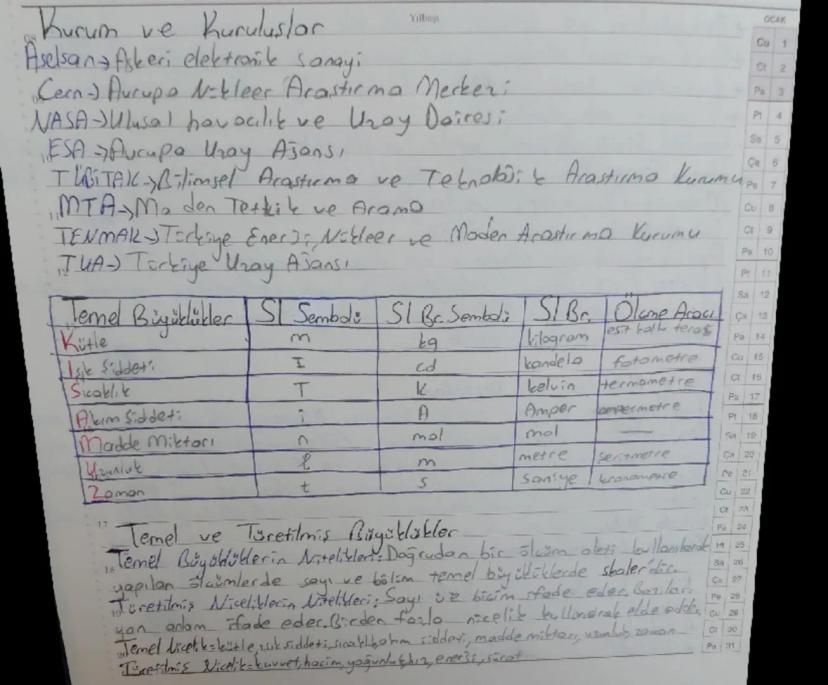 Yılbaşı
OCAK
Kurum ve Kuruluslar
Aselsan→Askeri elektronik sanayi
Cern→Avrupa Nükleer Arastırma Merkezi
NASA→Ulusal havacılık ve Uzay Dairesi
ESA→Avrupa Uzay Ajansı
TÜBİTAK→Bilimsel Arastırma ve Teknolojik Arastırma Kurumu
MTA→Maden Tetkik ve Arama
TENMAK→Türkiye Enerji, Nükleer ve Maden Arastırma Kurumu
TUA→Türkiye Uzay Ajansı
Temel Büyüklükler SI Sembolü SI Br. Sembolü SI Br. Ölçme Aracı
Kütle m kg kilogram eşit kollu terazi
Işık Şiddeti I cd kandela fotometre
Sıcaklık T K kelvin termometre
Akım Şiddeti i A Amper ampermetre
Madde Miktarı n mol mol —
Uzunluk l m metre
Zaman t s saniye kronometre
Temel ve Türetilmiş Büyüklükler
Temel Büyüklüklerin Nitelikleri: Doğrudan bir ölçüm aleti kullanılarak
yapılan ölçümlerde sayı ve birim temel büyüklüklerde skalerdir.
Türetilmiş Niceliklerin Nitelikleri: Sayı ve birim ifade eder. Bazıları
yön anlam ifade eder. Birden fazla nicelik kullanarak elde edilir
Temel Nicelik=kütle, ışık şiddeti, sıcaklık, akım şiddeti, madde miktarı, uzunluk, zaman
Türetilmiş Nicelik=kuvvet, hacim, yoğunluk, hız, enerji, sürat